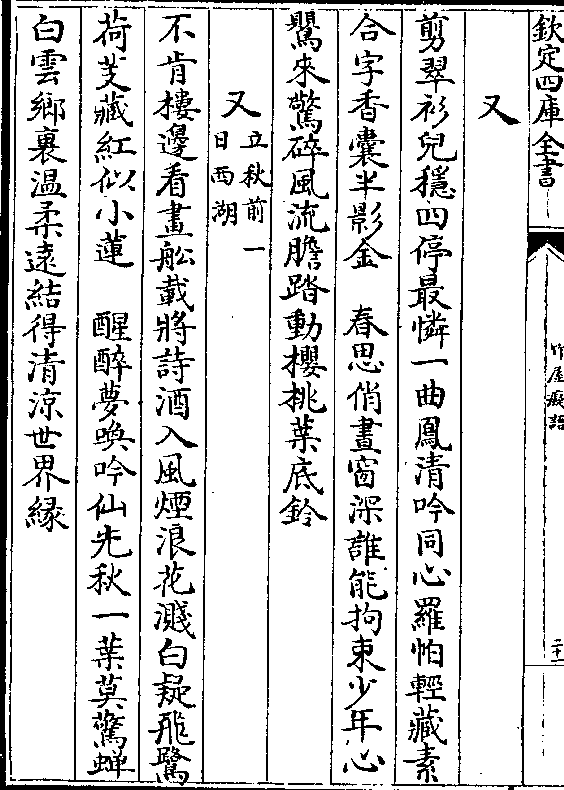 欽定四庫全書
竹屋癡語
二十一
又
剪翠衫兒穩四停最憐一曲鳳清吟同心羅帕輕藏素
合字香囊半影金　春思俏晝窗深誰能拘束少年心
鸎來驚碎風流膽踏動櫻桃葉底鈴
又立秋前一日西湖
不肯樓邊看畫舩載將詩酒入風煙浪花濺白疑飛鷺
荷芰藏紅似小蓮　醒醉夢喚吟仙先秋一葉莫驚蟬
白雲鄉裏溫柔遠結得清涼世界緣